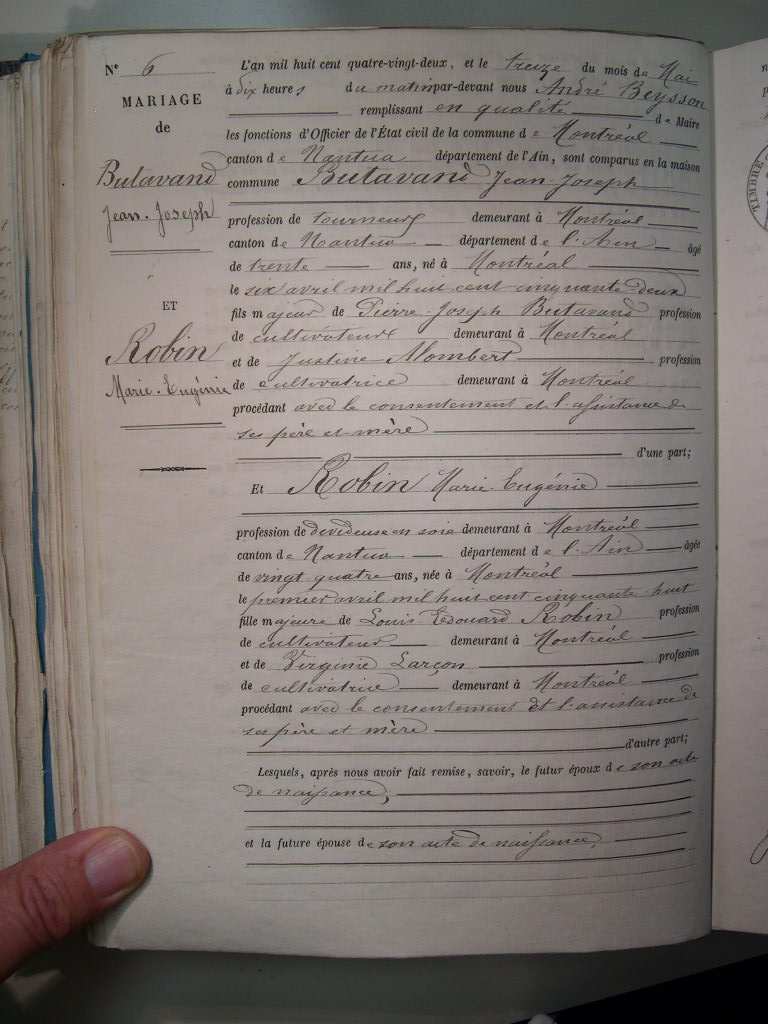 N° 6
MARIAGE
de
Butavand
Jean-Joseph
ET
Robin
Marie-Eugénie
L'an mil huit cent quatre-vingt-deux, et le treize du mois de Mai
à dix heures du matin par-devant nous André Beysson
remplissant en qualité de Maire
les fonctions d'Officier de l'État civil de la commune de Montréal
canton de Nantua département de l'Ain, sont comparus en la maison
commune Butavand Jean-Joseph
profession de tourneur demeurant à Montréal
canton de Nantua département de l'Ain âgé
de trente ans, né à Montréal
le six avril mil huit cent cinquante-deux
fils majeur de Pierre-Joseph Butavand profession
de cultivateur demeurant à Montréal
et de Justine Mombert profession
de cultivatrice demeurant à Montréal
procédant avec le consentement et l'assistance de
ses père et mère
d'une part;
Et Robin Marie Eugénie
profession de dévideuse en soie demeurant à Montréal
canton de Nantua département de l'Ain âgée
de vingt quatre ans, née à Montréal
le premier avril mil huit cent cinquante huit
fille majeure de Louis Edouard Robin profession
de cultivateur demeurant à Montréal
et de Virginie Larçon profession
de cultivatrice demeurant à Montréal
procédant avec le consentement et l'assistance de
ses père et mère
d'autre part;
Lesquels, après nous avoir fait remise, savoir, le futur époux de son acte
de naissance;
et la future épouse de son acte de naissance,
TIMBRE